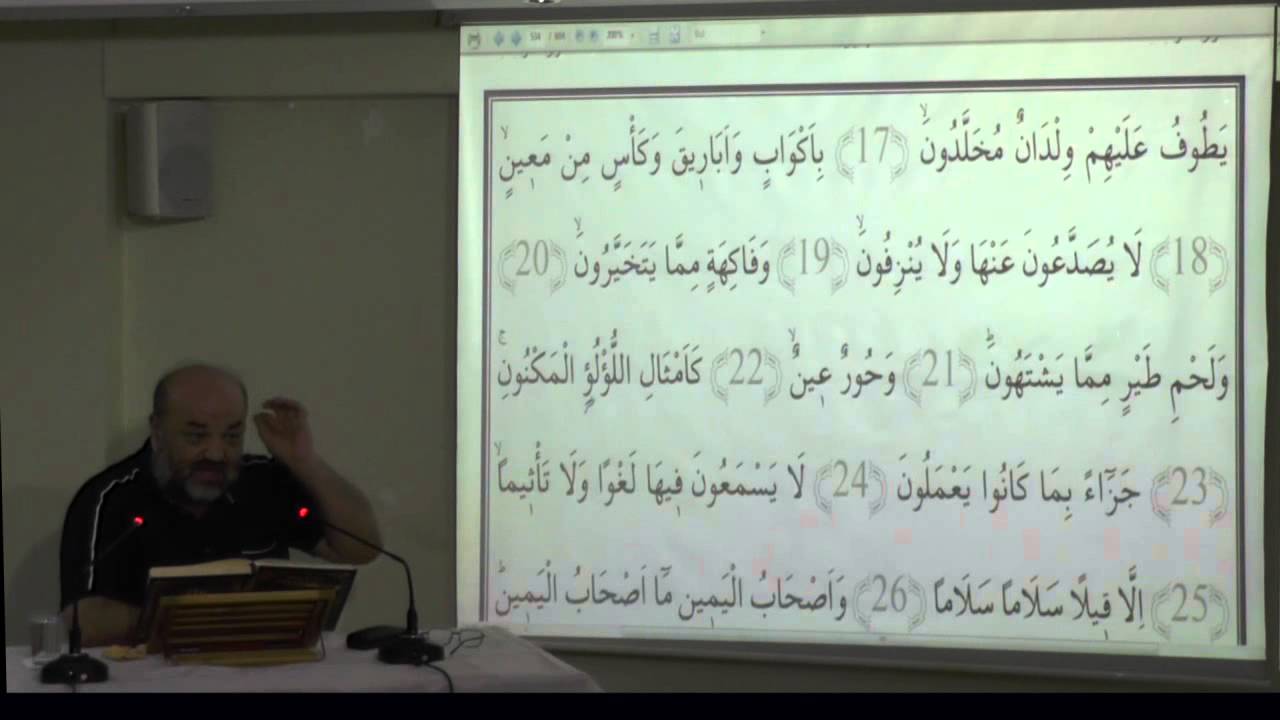 534 / 604 200% Bul
يَطُوفُ عَلَيْهِمْ وِلْدَانٌ مُخَلَّدُونَۙ ﴿17﴾ بِاَكْوَابٍ وَاَبَارٖيقَ وَكَأْسٍ مِنْ مَعٖينٍۙ
﴿18﴾ لَا يُصَدَّعُونَ عَنْهَا وَلَا يُنْزِفُونَۙ ﴿19﴾ وَفَاكِهَةٍ مِمَّا يَتَخَيَّرُونَۙ ﴿20﴾
وَلَحْمِ طَيْرٍ مِمَّا يَشْتَهُونَؕ ﴿21﴾ وَحُورٌ عٖينٌۙ ﴿22﴾ كَاَمْثَالِ اللُّؤْلُؤِ الْمَكْنُونِۚ
﴿23﴾ جَزَٓاءً بِمَا كَانُوا يَعْمَلُونَ ﴿24﴾ لَا يَسْمَعُونَ فٖيهَا لَغْوًا وَلَا تَأْثٖيماًۙ
﴿25﴾ اِلَّا قٖيلًا سَلَاماً سَلَاماً ﴿26﴾ وَاَصْحَابُ الْيَمٖينِ مَٓا اَصْحَابُ الْيَمٖينِؕ